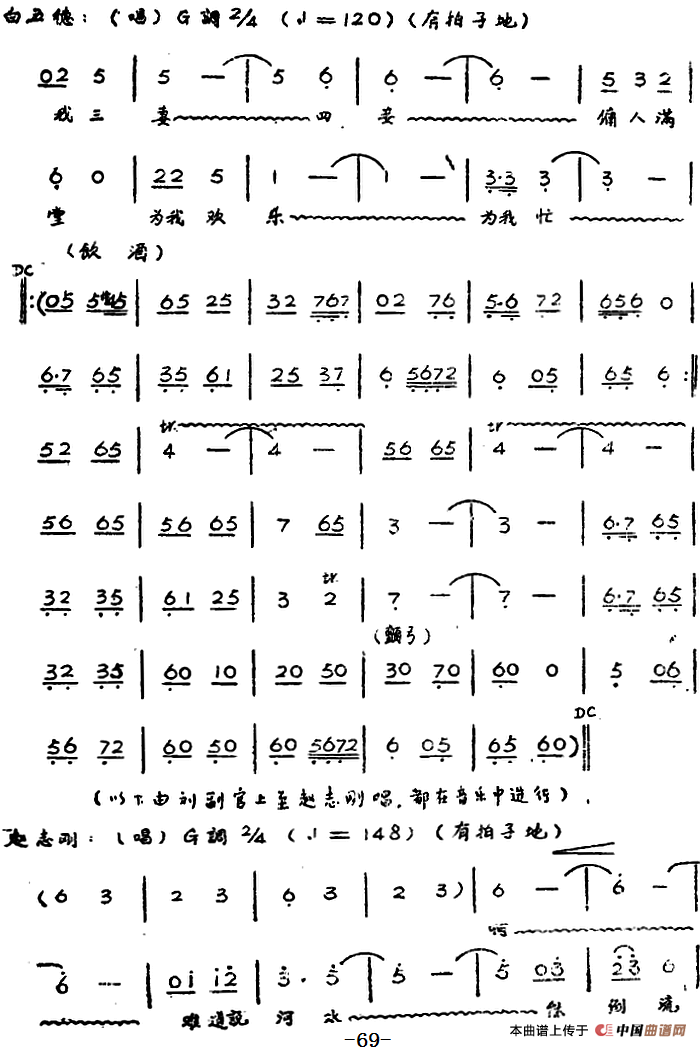 白五德：（唱）G調2/4（♩=120）（有拍子地）
02 5 | 5 — | 5 6 | 6 — | 6 — | 5 3 2 |
我三 妻 四 妾 傭人滿
6 0 | 22 5 | 1 — | 1 — | 3·3 3 | 3 — |
堂 为我 欢 乐 为我 忙
（飲 酒）
DC
‖:(05 | 65 25 | 32 767 | 02 76 | 5·6 72 | 656 0 |
6·7 65 | 35 61 | 25 37 | 6 5672 | 6 05 | 65 6 :‖
tr tr
52 65 | 4 — | 4 — | 56 65 | 4 — | 4 — |
56 65 | 56 65 | 7 65 | 3 — | 3 — | 6·7 65 |
tr
32 35 | 61 25 | 3 2 | 7 — | 7 — | 6·7 65 |
（顫弓）
32 35 | 60 10 | 20 50 | 30 70 | 60 0 | 5 06 |
DC
56 72 | 60 50 | 60 5672 | 6 05 | 65 60) ‖
（以下由刘副官上至赵志刚唱，都在音乐中进行）．
赵志刚：（唱）G調2/4（♩=148）（有拍子地）
(6 3 | 2 3 | 6 3 | 2 3) | 6 — | 6 — |
6 -- | 01 12 | 3·5 | 5 — | 5 03 | 23 6 |
难道說 河 水 倒 流
-69-
本曲谱上传于 中国曲谱网